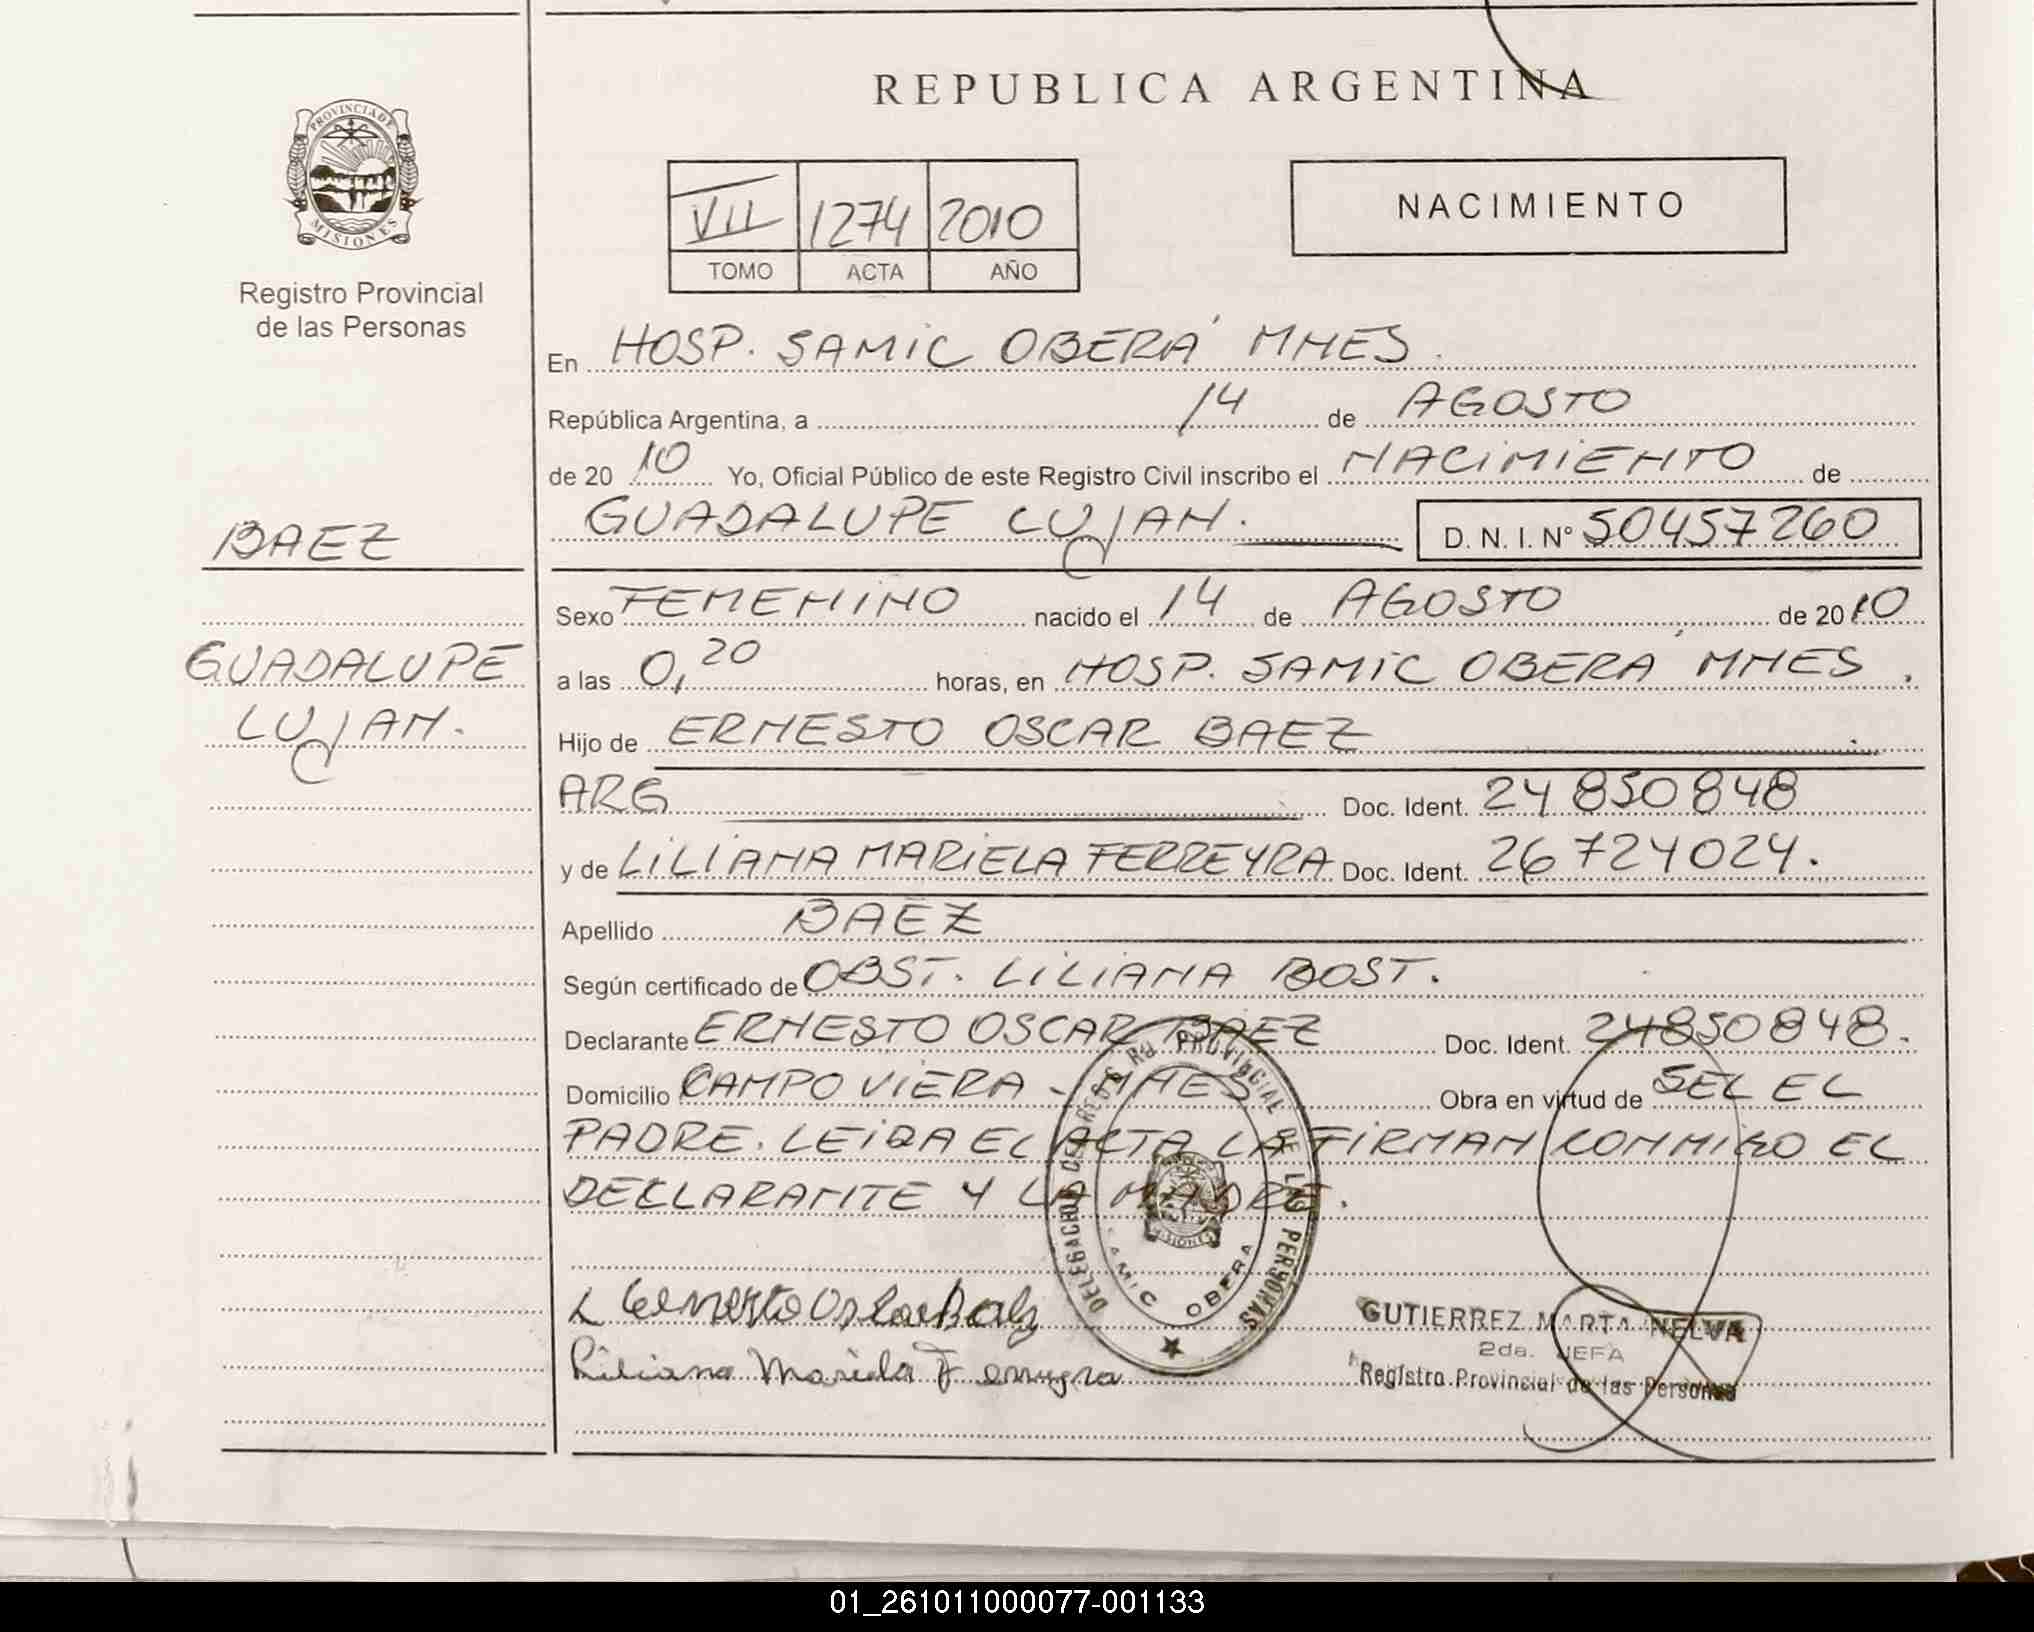 REPUBLICA ARGENTINA
PROVINCIA DE
MISIONES
Registro Provincial
de las Personas
VII 1274 2010
TOMO ACTA AÑO
NACIMIENTO
En HOSP. SAMIC OBERÁ MNES.
República Argentina, a 14 de AGOSTO
de 20 10 Yo, Oficial Público de este Registro Civil inscribo el NACIMIENTO de
GUADALUPE LUJAN. D. N. I. N° 50457260
BAEZ
GUADALUPE
LUJAN.
Sexo FEMENINO nacido el 14 de AGOSTO de 20 10
a las 0,20 horas, en HOSP. SAMIC OBERÁ MNES.
Hijo de ERNESTO OSCAR BAEZ
ARG Doc. Ident. 24 850 848
y de LILIANA MARIELA FERREYRA Doc. Ident. 26 724 024.
Apellido BAEZ
Según certificado de OBST. LILIANA BOST.
Declarante ERNESTO OSCAR BAEZ Doc. Ident. 24850848.
Domicilio CAMPO VIERA - MNES Obra en virtud de SEL EL
PADRE. LEIDA EL ACTA LA FIRMAN CONMIGO EL
DECLARANTE Y LA MADRE.
DELEGACION DEL REGISTRO PROVINCIAL DE LAS PERSONAS
MISIONES
SAMIC OBERA
Ernesto Oscar Baez
Liliana Mariela Ferreyra
GUTIERREZ MARTA NELVA
2da. JEFA
Registro Provincial de las Personas
01_261011000077-001133